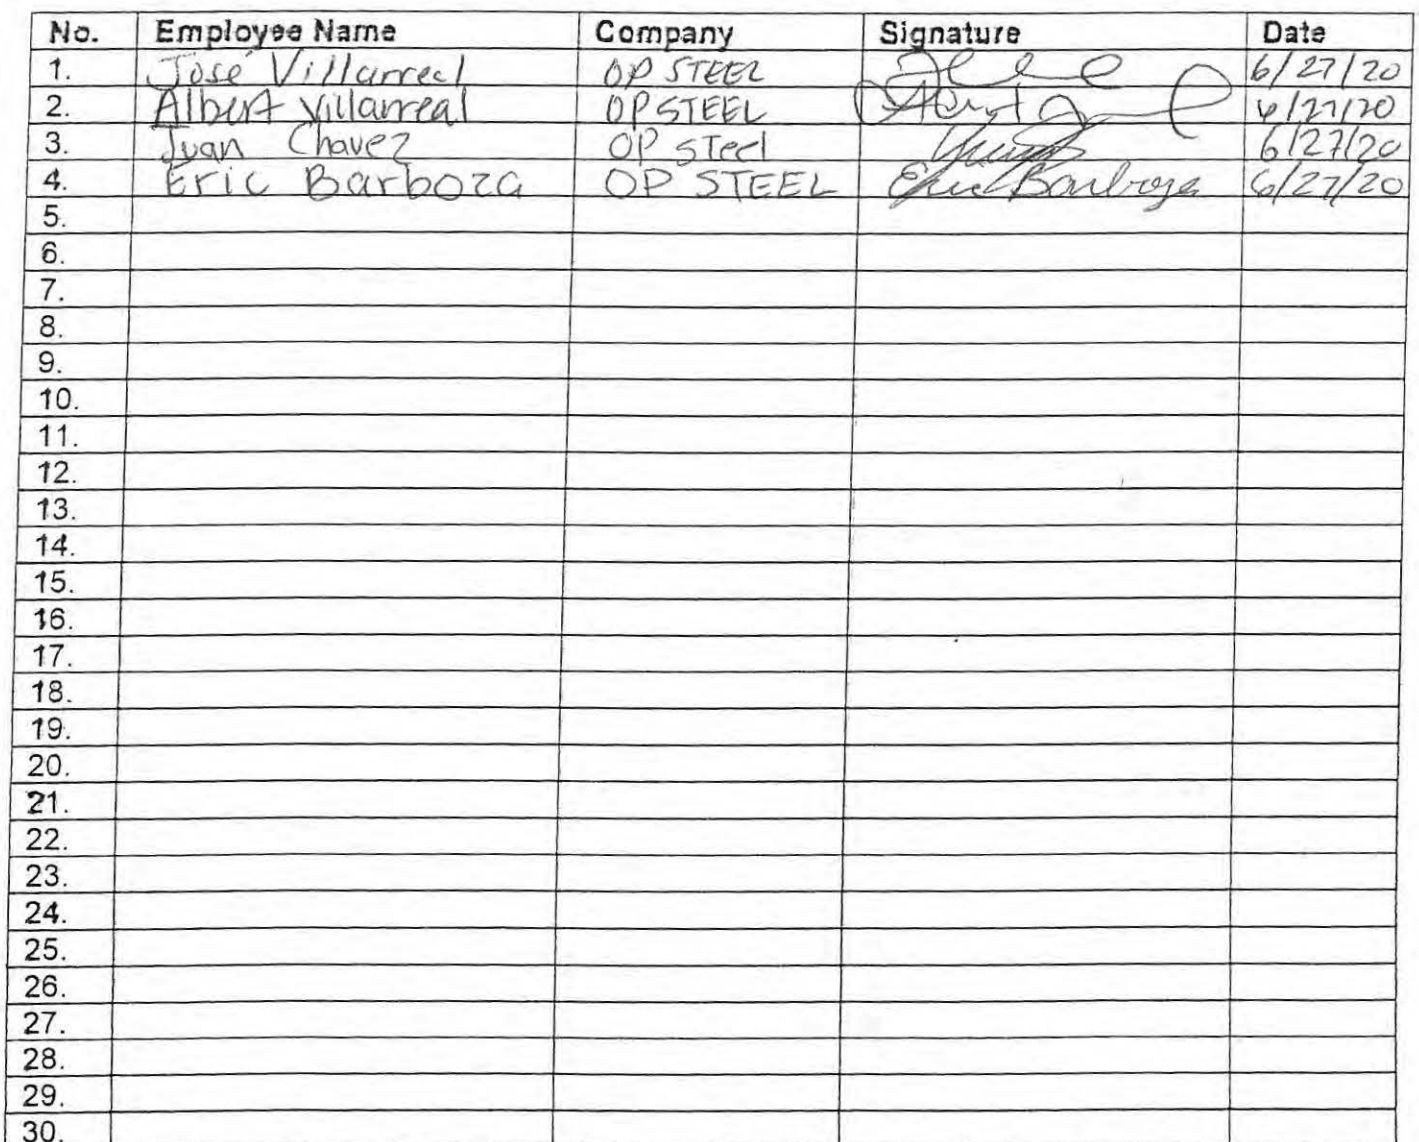 No. Employee Name Company Signature Date
1. José Villarreal OP STEEL 6/27/20
2. Albert Villarreal OP STEEL 6/27/20
3. Juan Chavez OP STeel 6/27/20
4. Eric Barboza OP STEEL Eric Barboza 6/27/20
5.
6.
7.
8.
9.
10.
11.
12.
13.
14.
15.
16.
17.
18.
19.
20.
21.
22.
23.
24.
25.
26.
27.
28.
29.
30.